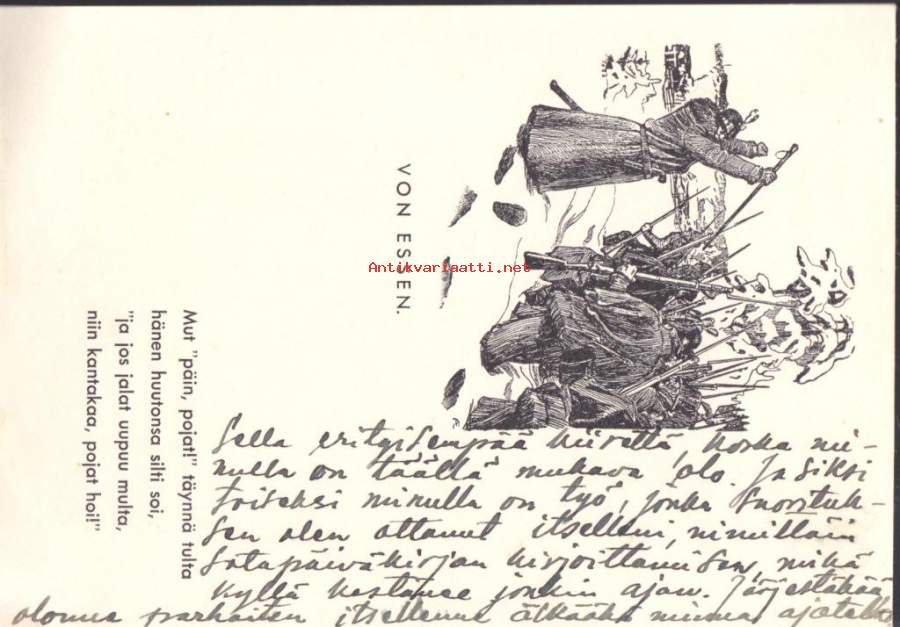 VON ESSEN.
Mut "päin, pojat!" täynnä tulta
hänen huutonsa silti soi,
"ja jos jalat uupuu multa,
niin kantakaa, pojat hoi!"
Antikvariaatti.net
sella erityisempää kiirettä, koska mi-
nulla on täällä mukava olo. Ja siksi
toiseksi minulla on työ, jonka suorituk-
sen olen ottanut itselleni, nimittäin
sotapäiväkirjan kirjoittamisen, mikä
kyllä kestänee jonkin ajan. Järjestäkää
olonne parhaiten itsellenne älkääkä minua ajatelko